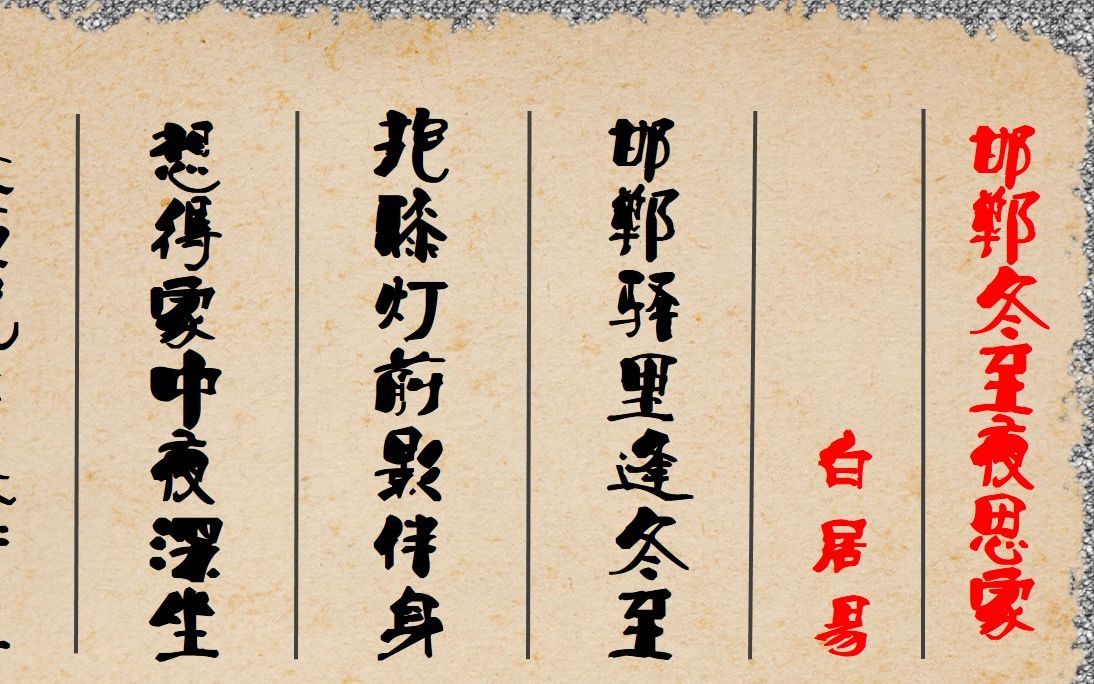 邯郸冬至夜思家
白居易
邯郸驿里逢冬至
抱膝灯前影伴身
想得家中夜深坐